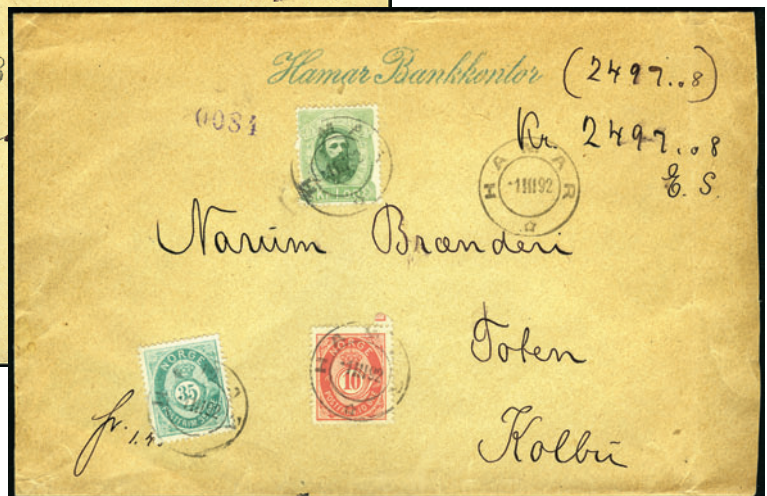 Hamar Bankkontor
(2497..8)
0084
Kr. 2497..08
E. S.
HAMAR
-1III92
Narum Brænderi
Toten
Kolbu
NORGE
35
NORGE
10
HAMAR
-1III92
fr.